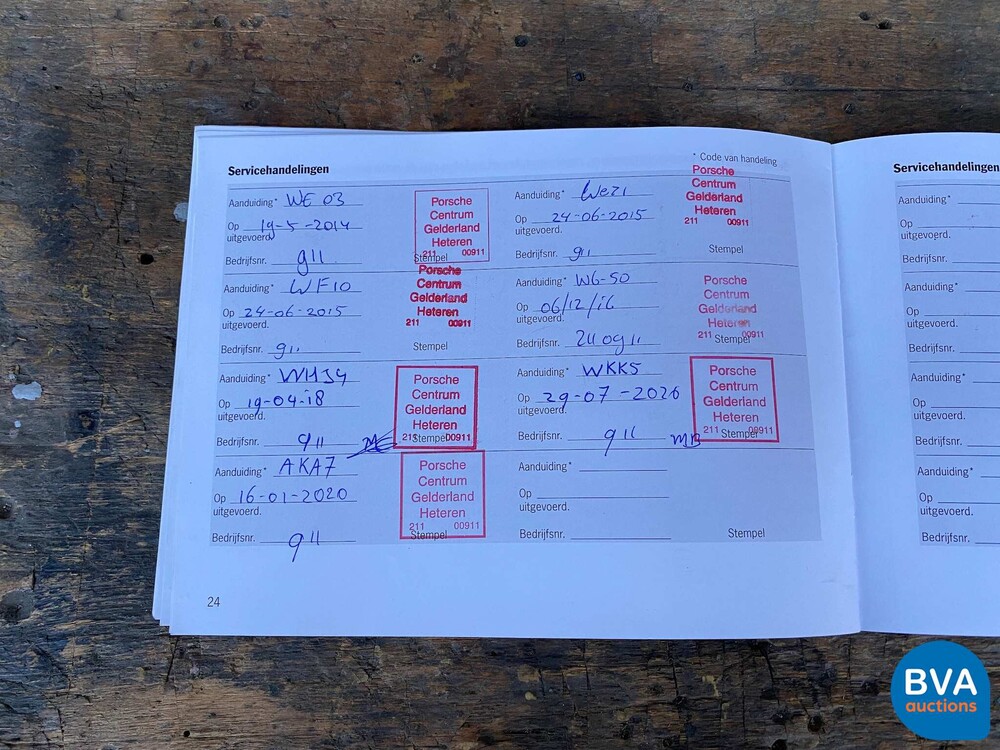 Servicehandelingen
* Code van handeling
Aanduiding* WE 03
Op 19-5-2014
uitgevoerd.
Bedrijfsnr. 911
Porsche
Centrum
Gelderland
Heteren
211 00911
Stempel
Aanduiding* We21
Op 24-06-2015
uitgevoerd.
Bedrijfsnr. 911
Porsche
Centrum
Gelderland
Heteren
211 00911
Stempel
Aanduiding* WF10
Op 24-06-2015
uitgevoerd.
Bedrijfsnr. 911
Porsche
Centrum
Gelderland
Heteren
211 00911
Stempel
Aanduiding* WG-50
Op 06/12/16
uitgevoerd.
Bedrijfsnr.
Porsche
Centrum
Gelderland
Heteren
211 00911
Stempel
Aanduiding* WH34
Op 19-04-18
uitgevoerd.
Bedrijfsnr. 911
Porsche
Centrum
Gelderland
Heteren
211 00911
Stempel
Aanduiding* WKK5
Op 29-07-2020
uitgevoerd.
Bedrijfsnr. 911 MB
Porsche
Centrum
Gelderland
Heteren
211 00911
Stempel
Aanduiding* AKA7
Op 16-01-2020
uitgevoerd.
Bedrijfsnr. 911
Porsche
Centrum
Gelderland
Heteren
211 00911
Stempel
Aanduiding*
Op
uitgevoerd.
Bedrijfsnr.
Stempel
24
Servicehandelingen
Aanduiding*
Op
uitgevoerd.
Bedrijfsnr.
Aanduiding*
Op
uitgevoerd.
Bedrijfsnr.
Aanduiding*
Op
uitgevoerd.
Bedrijfsnr.
Aanduiding*
Op
uitgevoerd.
Bedrijfsnr.
BVA
auctions